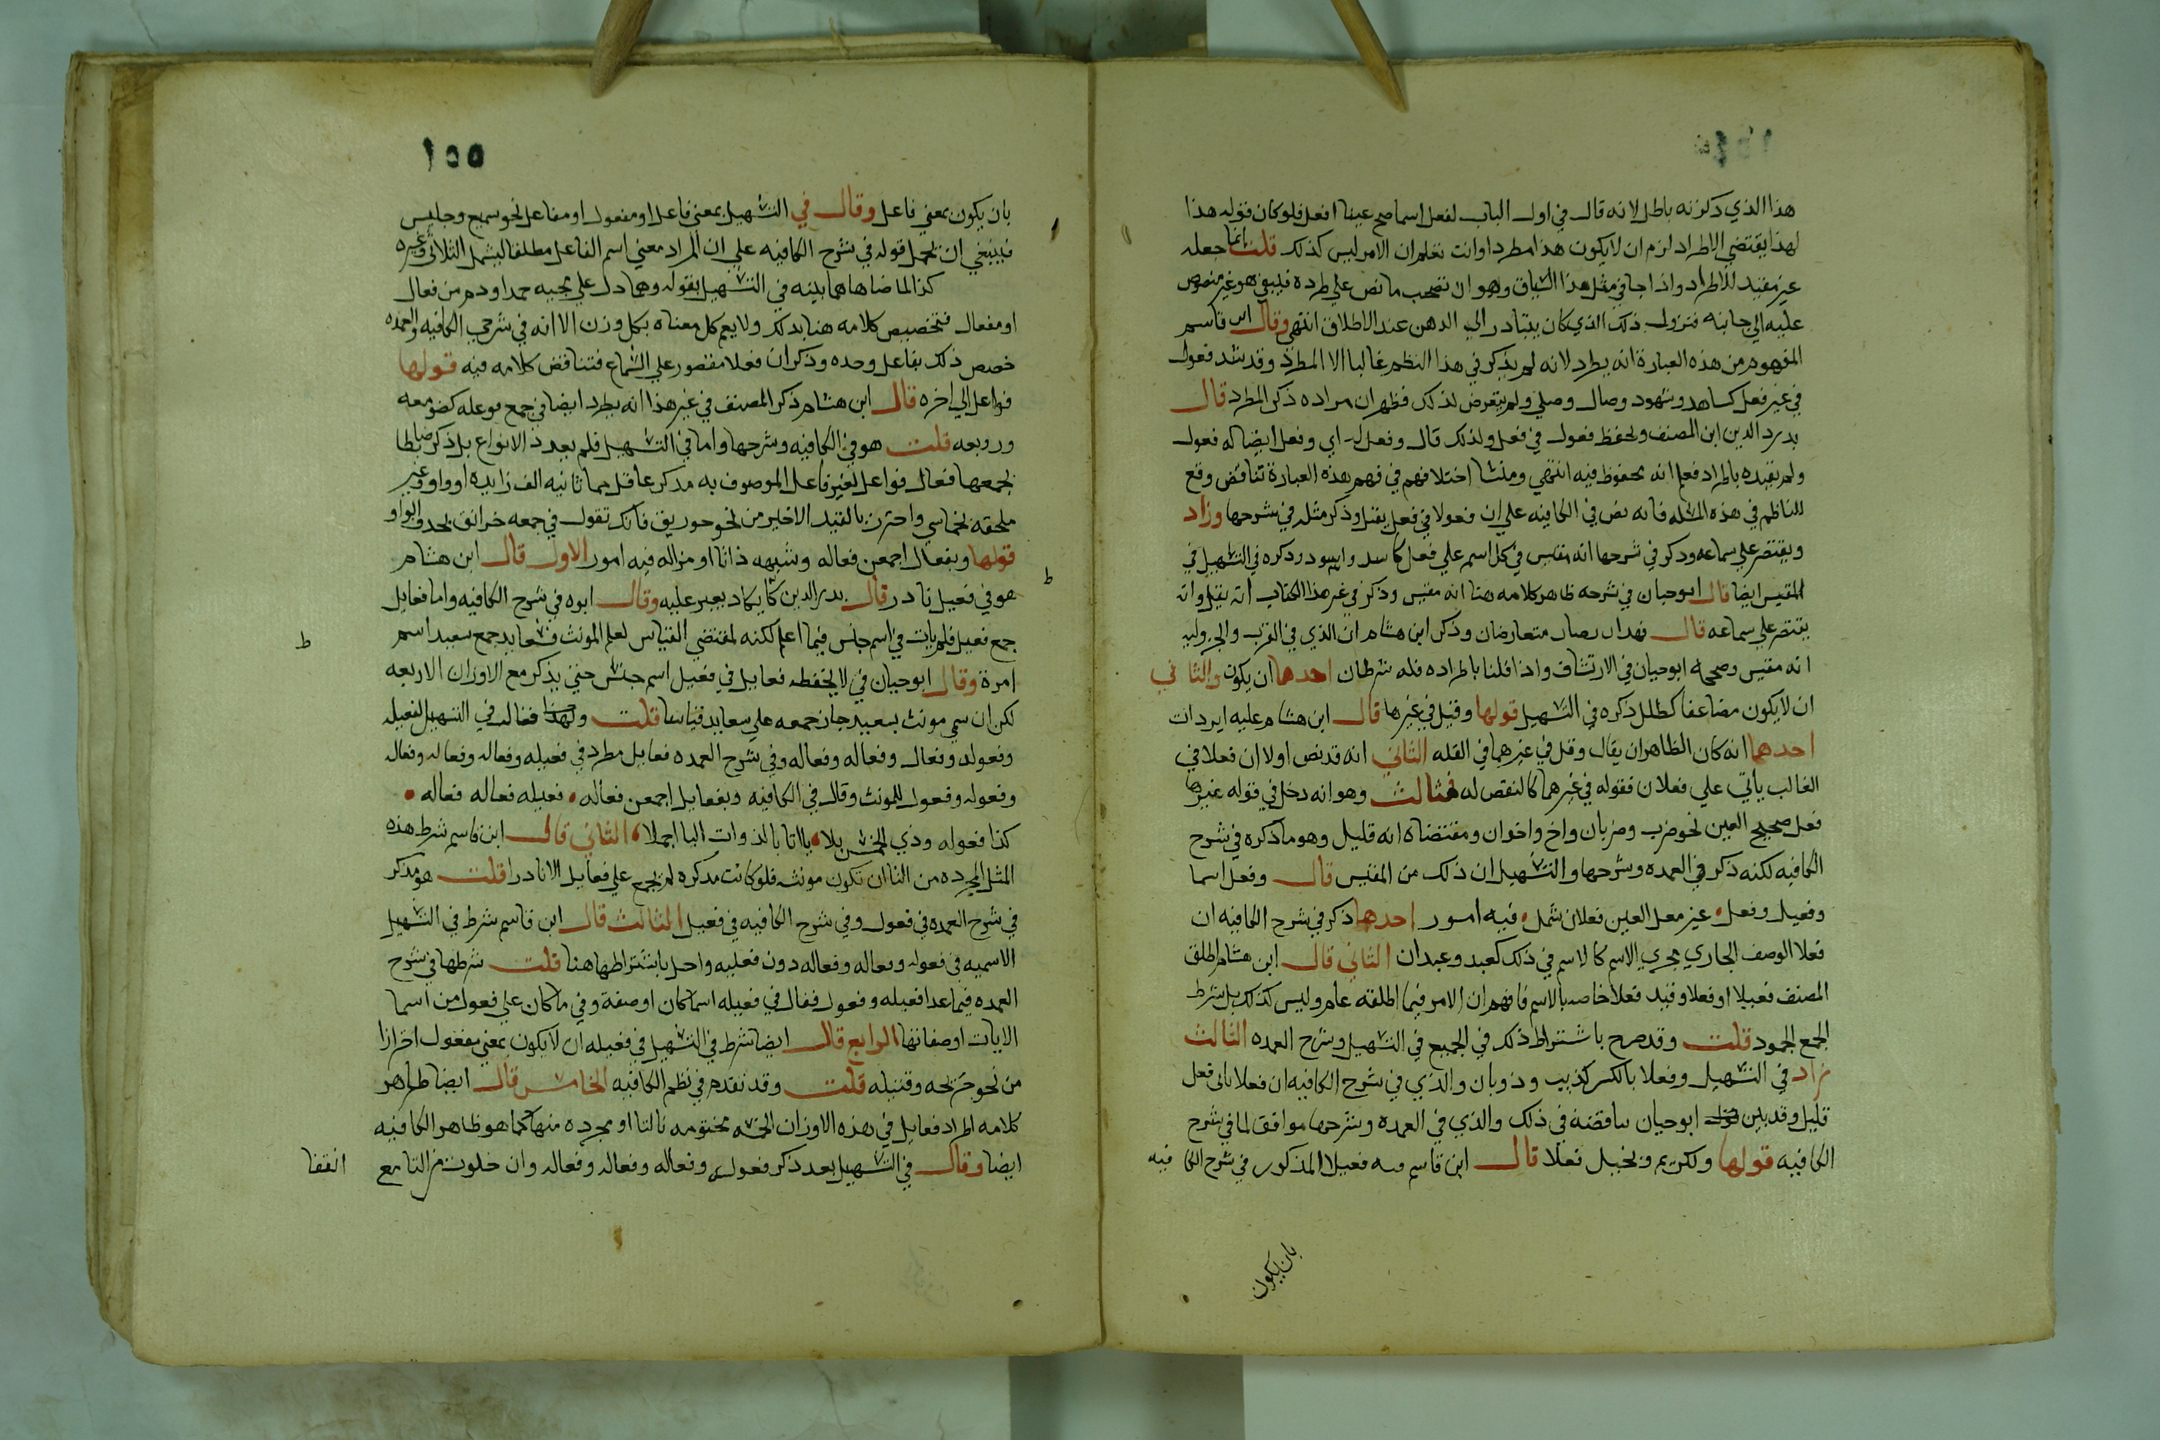 هذا الذي ذكرته باطل لانه قال في اول الباب لفعل اسما صح عينا افعل فلو كان قوله هذا
لهذا يقتضي الاطراد لزم ان لا يكون هذا مطردا وانت تعلم ان الامر ليس كذلك قلت انما جعله
غير مقيد للاطراد واذا جا في مثل هذا السياق وهو ان تصحب ما نص علي طرده فليبق هو غير منصوص
عليه الي جانبه فنزول ذلك الذي كان يتبادر الي الدهن عند الاطلاق انتهي وقال ابن قاسم
المفهوم من هذه العبارة انه يطرد لانه لم يذكر في هذا النظم غالبا الا المطرد وقد شد فعول
في غير فعل كساهد وشهود وصال وصلي ولم يتعرض لذلك فظهر ان مراده ذكر المطرد قال
بدر الدين ابن المصنف ويحفظ فعول في فعل ولذلك قال وفعل له اي وفعل ايضا له فعول
ولم يقيده باطراد فعلم انه محفوظ فيه انتهي ومنشا اختلافهم في فهم هذه العبارة تناقض وقع
للناظم في هذه المسله فانه نص في الكافيه علي ان فعولا في فعل يقل وذكر مثله في شرحها وزاد
ويقتصر علي سماعه وذكر في شرحها انه مقيس في كل اسم علي فعل كاسد واسود وذكره في التسهيل في
المقيس ايضا قال ابو حيان في شرحه ظاهر كلامه هنا انه مقيس وذكر في غير هذا الكتاب انه يقل وانه
يقتصر علي سماعه قال فهدان نصان متعارضان وذكر ابن هشام ان الذي في القرب والجزوليه
انه مقيس وصححه ابو حيان في الارتشاف واذا قلنا باطراده فله شرطان احدها ان يكون والثاني
ان لا يكون مضاعفا كطلل ذكره في التسهيل قولها وقيل في غيرها قال ابن هشام عليه ايردات
احدهما انه كان الظاهر ان يقال وقل في غيرهما في القله الثاني انه قد نص اولا ان فعلا في
الغالب يأتي علي فعلان فقوله في غيرهما كالنقص له فثالث وهو انه دخل في قوله غيرها
فعل صحيح العين نحو ضرب وضربان واخ واخوان ومقتضاه انه قليل وهو ما ذكره في شرح
الكافيه لكنه ذكر في العمده وشرحها والتسهيل ان ذلك من المقيس قال وفعل اسما
وفعيل وفعل غير معل العين فعلان شمل فيه امور احدها ذكر في شرح الكافيه ان
فعلا الوصف الجاري مجري الاسم كالاسم في ذلك كعبد وعبدان الثاني قال ابن هشام اطلق
المصنف فعيلا او فعلا وقيد فعلا خاصه بالاسم فافهم ان الامر فيما اطلقه عام وليس كذلك بل شرط
الجمع الجمود قلت وقد صرح باشتراط ذلك في الجميع في التسهيل وشرح العمده الثالث
زاد في التسهيل وفعلا بالكسر كذيب وذوبان والذي في شرح الكافيه ان فعلا باني فعل
قليل وقد بين ابو حيان تناقضه في ذلك والذي في العمدة وشرحها موافق لما في شرح
الكافيه قولها ولكريم وبخيل فعلا قال ابن قاسم فيه فعيلا المذكور في شرح الكا فيه
بان يكون
١٥٥
بان يكون بمعني فاعل وقال في التسهيل بمعني فاعل او مفعول او مفاعل نحو سميع وجليس
فينبغي ان تحمل قوله في شرح الكافيه علي ان المراد معني اسم الفاعل مطلقا ليشمل الثلاثي وغيره
كذا لما ضاهاهما بينه في التسهيل بقوله وهما دل علي سجيه حمدا وذم من فعال
او مفعال فتخصيص كلامه هنا بذلك ولا يعم كل معناه بكل وزن الا انه في شرحي الكافيه والعمده
خصص ذلك بفاعل وحده وذكر ان فعلا مقصور علي السماع فتناقض كلامه فيه قولها
فواعل الي اخره قال ابن هشام ذكر المصنف في غير هذا انه يطرد ايضا في جمع فوعله كضومعه
وزوبعه قلت هو في الكافيه وشرحها واما في التسهيل فلم يعدد الانواع بل ذكر ضابطا
لجمعها فقال فواعل لغير فاعل الموصوف به مذكر عاقل مما ثانيه الف زايده او واو غير
ملحقه بخماسي واحترز بالقيد الاخير من نحو حوريق فانك تقول في جمعه خرانق بحذف الواو
قولها وبفعال اجمعن فعاله وشبهه ذا تا او مزاله فيه امور الاول قال ابن هشام
هو في فعيل نادر قال بدر الدين كما يكاد يعبر عليه وقال ابوه في شرح الكافيه واما فعايل
جمع فعيل فلم يات في اسم جنس فيما اعلم لكنه بمقتضي القياس لعلم المونث فعايد جمع سعيد اسم
امرة وقال ابو حيان في لا يحفظ فعايل في فعيل اسم جنس حتي يذكر مع الاوزان الاربعه
لكن ان سمي مونث بسعيد جاز جمعه علي سعايد قياسا قلت ولهذا فقال في التسهيل لفعيله
وفعوله وفعال وفعاله وفعاله وفي شرح العمده فعايل مطرد في فعيله وفعاله وفعاله وفعاله
وفعوله وفعول للمونث وقال في الكافيه وبفعايل اجمعن فعاله فعيله فعاله فعاله
كذا فعوله وذي الخمس بلا ياتا بالذوات التا اجملا الثاني قال ابن قاسم شرط هذه
المثل المجرده من التا ان تكون مونثه فلو كانت مذكره لم يجمع علي فعايل الا نادرا قلت هو مذكر
في شرح العمده في فعول وفي شرح الكافيه في فعيل الثالث قال ابن قاسم شرط في التسهيل
الاسميه في فعوله وفعاله وفعاله دون فعليه واحل باشتراطها هنا قلت شرطها في شرح
العمده فيما عدا فعيله وفعول فقال في فعيله اسما كان او صفة وفي ما كان علي فعول من اسما
الايات او صفاتها الرابع قال ايضا شرط في التسهيل في فعيله ان لا يكون بمعني مفعول احترازا
من نحو جريحه وقتيله قلت وقد تقدم في نظم الكافيه الخامس قال ايضا ظاهر
كلامه اطراد فعايل في هذه الاوزان الخمسه مختومه نالتا او مجرده منها كما هو ظاهر الكافيه
ايضا وقال في التسهيل بعد ذكر فعوله وفعاله وفعاله وفعاله وان خلون من التا مع انقفا
ط
ط